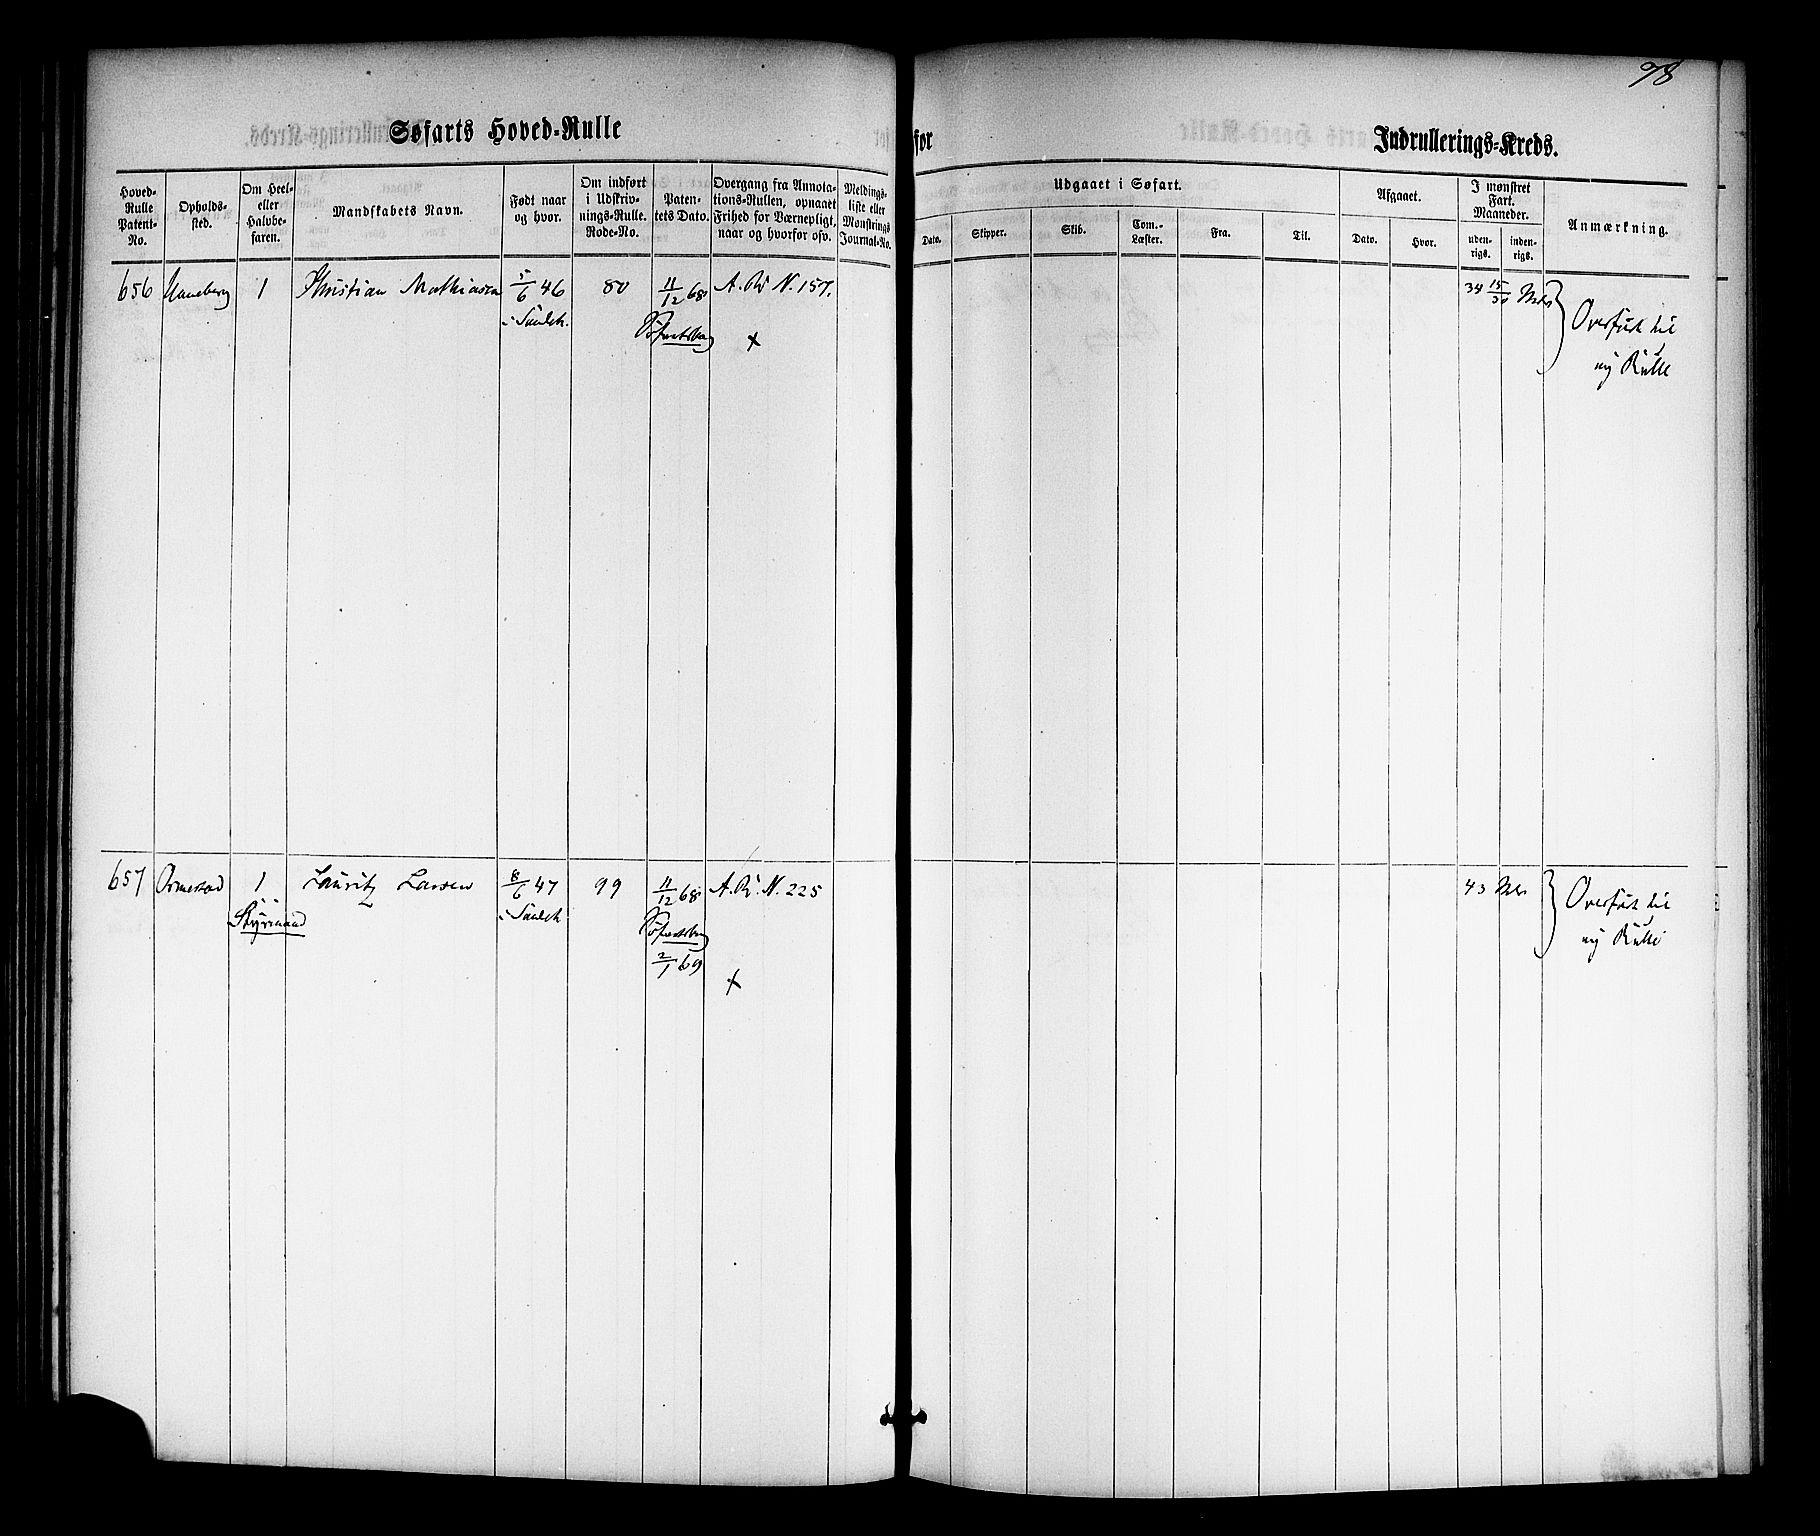 78
Søfarts Hoved-Rulle
for
Indrullerings-Kreds.
Hoved-
Rulle
Patent-
No.
Opholds-
sted.
Om Heel-
eller
Halvbe-
faren.
Mandskabets Navn.
Født naar
og hvor.
Om indført
i Udskriv-
nings-Rulle.
Rode-No.
Paten-
tets Dato.
Overgang fra Annota-
tions-Rullen, opnaaet
Frihed for Værnepligt,
naar og hvorfor osv.
Meldings-
liste eller
Mønstrings
Journal-No.
Udgaaet i Søfart.
Dato.
Skipper.
Skib.
Com.-
Læster.
Fra.
Til.
Afgaaet.
Dato.
Hvor.
I mønstret
Fart.
Maaneder.
uden-
rigs.
inden-
rigs.
Anmærkning.
656 1 Christian Mathiasen 5/6 46 80 11/12 68 A. R. N. 157. 34 15/30 Mdr Overført til
ny Rulle
+
657 Ormestad 1 Lauritz Larsen 8/6 47 99 11/12 68 A. R. N. 225 43 Mdr Overført til
Styrmand ny Rulle
2/1 69
+